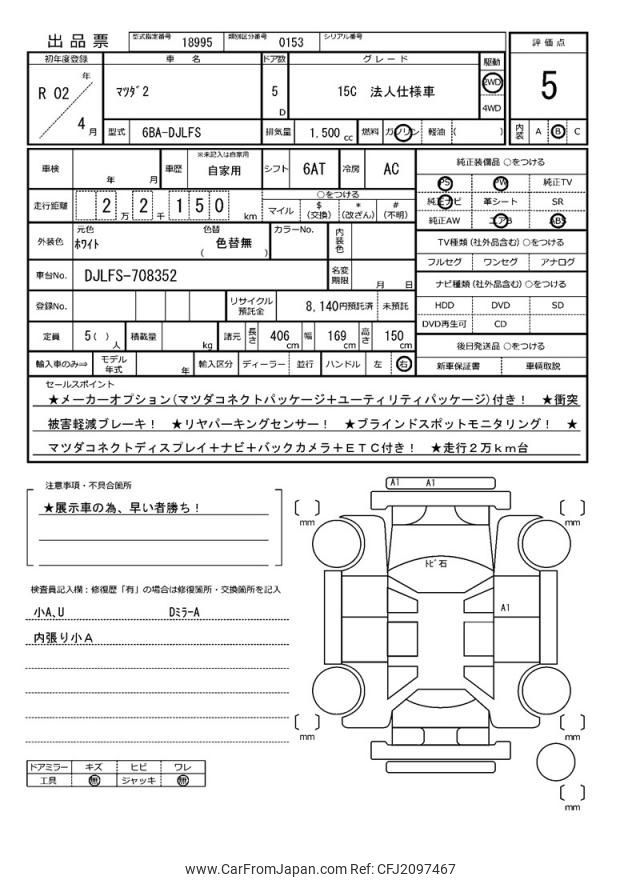 出品票 型式指定番号 18995 類別区分番号 0153 シリアル番号
評価点
5
内装 A B C
初年度登録 車名 ドア数 グレード 駆動
R 02 年 4 月
マツダ2 5 D 15C 法人仕様車 2WD 4WD
型式 6BA-DJLFS 排気量 1.500 cc 燃料 ガソリン 軽油 ( )
車検 年 月 車歴 ※未記入は自家用 自家用 シフト 6AT 冷房 AC
走行距離 2 万 2 千 1 5 0 km
○をつける
マイル $ (交換) * (改ざん) # (不明)
外装色 元色 ホワイト 色替 ( 色替無 ) カラーNo. 内装色
車台No. DJLFS-708352 名変期限 月 日
登録No. リサイクル預託金 8,140円預託済 未預託
定員 5( ) 人 積載量 kg 諸元 長さ 406 cm 幅 169 cm 高さ 150 cm
輸入車のみ⇒ モデル年式 年 輸入区分 ディーラー 並行 ハンドル 左 右
純正装備品 ○をつける
PS PW 純正TV
純正ナビ 革シート SR
純正AW エアB ABS
TV種類(社外品含む) ○をつける
フルセグ ワンセグ アナログ
ナビ種類(社外品含む) ○をつける
HDD DVD SD
DVD再生可 CD
後日発送品 ○をつける
新車保証書 車輌取説
セールスポイント
★メーカーオプション(マツダコネクトパッケージ+ユーティリティパッケージ)付き! ★衝突
被害軽減ブレーキ! ★リヤパーキングセンサー! ★ブラインドスポットモニタリング! ★
マツダコネクトディスプレイ+ナビ+バックカメラ+ETC付き! ★走行2万km台
注意事項・不具合箇所
★展示車の為、早い者勝ち!
検査員記入欄:修復歴「有」の場合は修復箇所・交換箇所を記入
小A、U Dミラ-A
内張り小A
ドアミラー キズ ヒビ ワレ
工具 無 ジャッキ 無
A1 A1
mm mm
トビ石
A1
mm mm
mm
www.CarFromJapan.com Ref: CFJ2097467